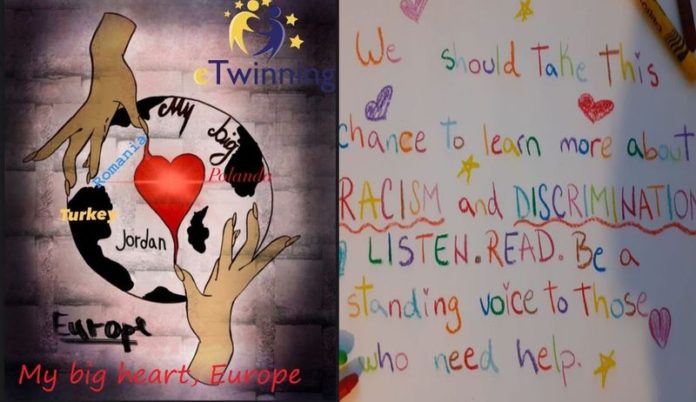 eTwinning
My big
Romania
Polanda
Turkey
Jordan
Europe
My big heart, Europe
We should Take This
chance to learn more about
RACISM and DISCRIMINATION
LISTEN.READ. Be a
standing voice to Those
who need help.